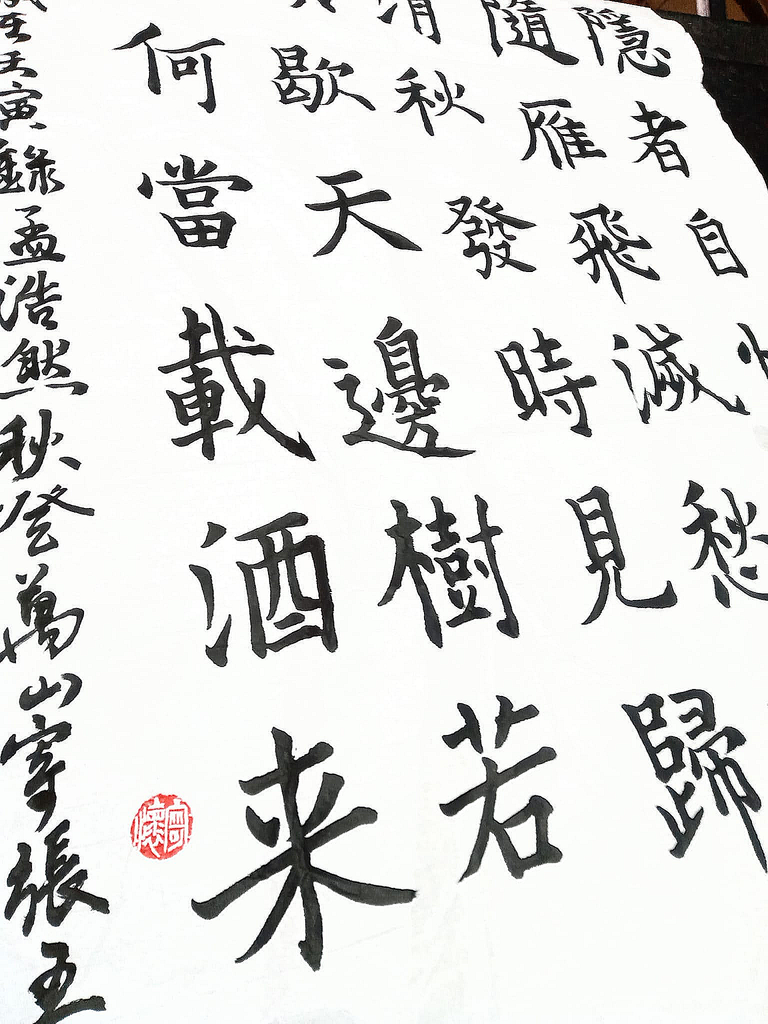 隱者自
隨雁飛滅愁
清秋發時見歸
歇天邊樹若
何當載酒来
壬寅錄孟浩然秋登萬山寄張五